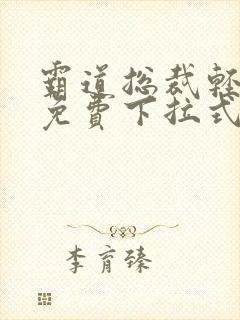 霸道总裁轻
免費下拉式
李育臻